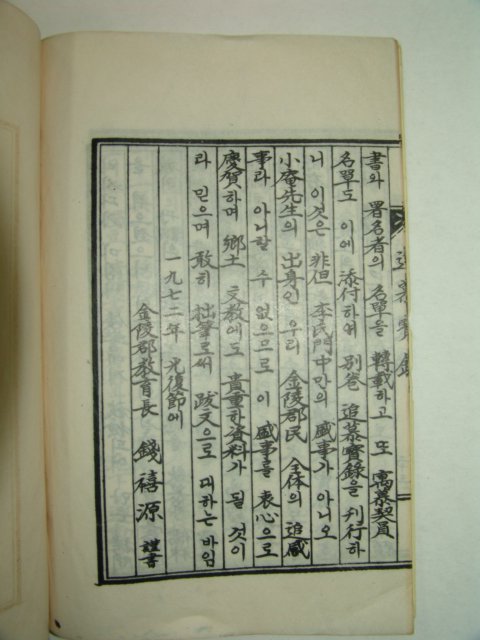 追慕實錄
書와 署名者의 名單을 轉載하고 또 寓慕契員
名單도 이에 添付하여 別卷 追慕實錄을 刊行하
니 이것은 非但 李氏門中만의 盛事가 아니오
小庵先生의 出身인 우리 金陵郡民 全体의 追感
事라 아니할 수 없으므로 이 盛事를 衷心으로
慶賀하며 鄕土 文敎에도 貴重한 資料가 될 것이
라 믿으며 敢히 拙筆로써 跋文으로 대하는 바임
一九七二年 光復節에
金陵郡敎育長 錢禧源 謹書